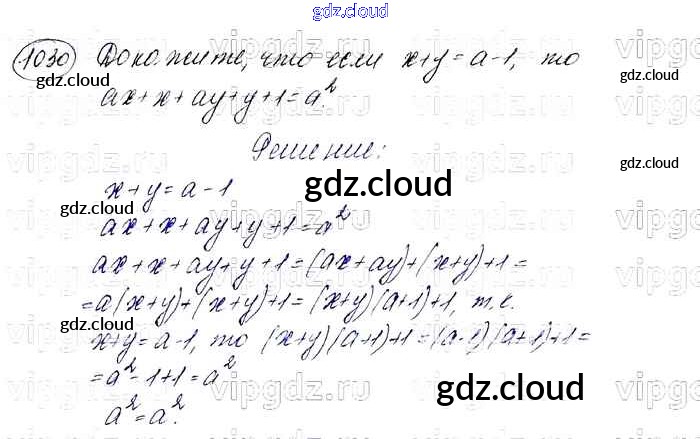 gdz.cloud
1030 Докажите, что если x+y=a-1, то
ax+x+ay+y+1=a².
Решение:
x+y=a-1
ax+x+ay+y+1=a²
ax+x+ay+y+1=(ax+ay)+(x+y)+1=
=a(x+y)+(x+y)+1=(x+y)(a+1)+1, т.к.
x+y=a-1, то (x+y)(a+1)+1=(a-1)(a+1)+1=
=a²-1+1=a²
a²=a².
gdz.cloud
gdz.cloud
gdz.cloud
gdz.cloud
gdz.cloud
gdz.cloud
gdz.cloud
gdz.cloud
vipgdz.ru